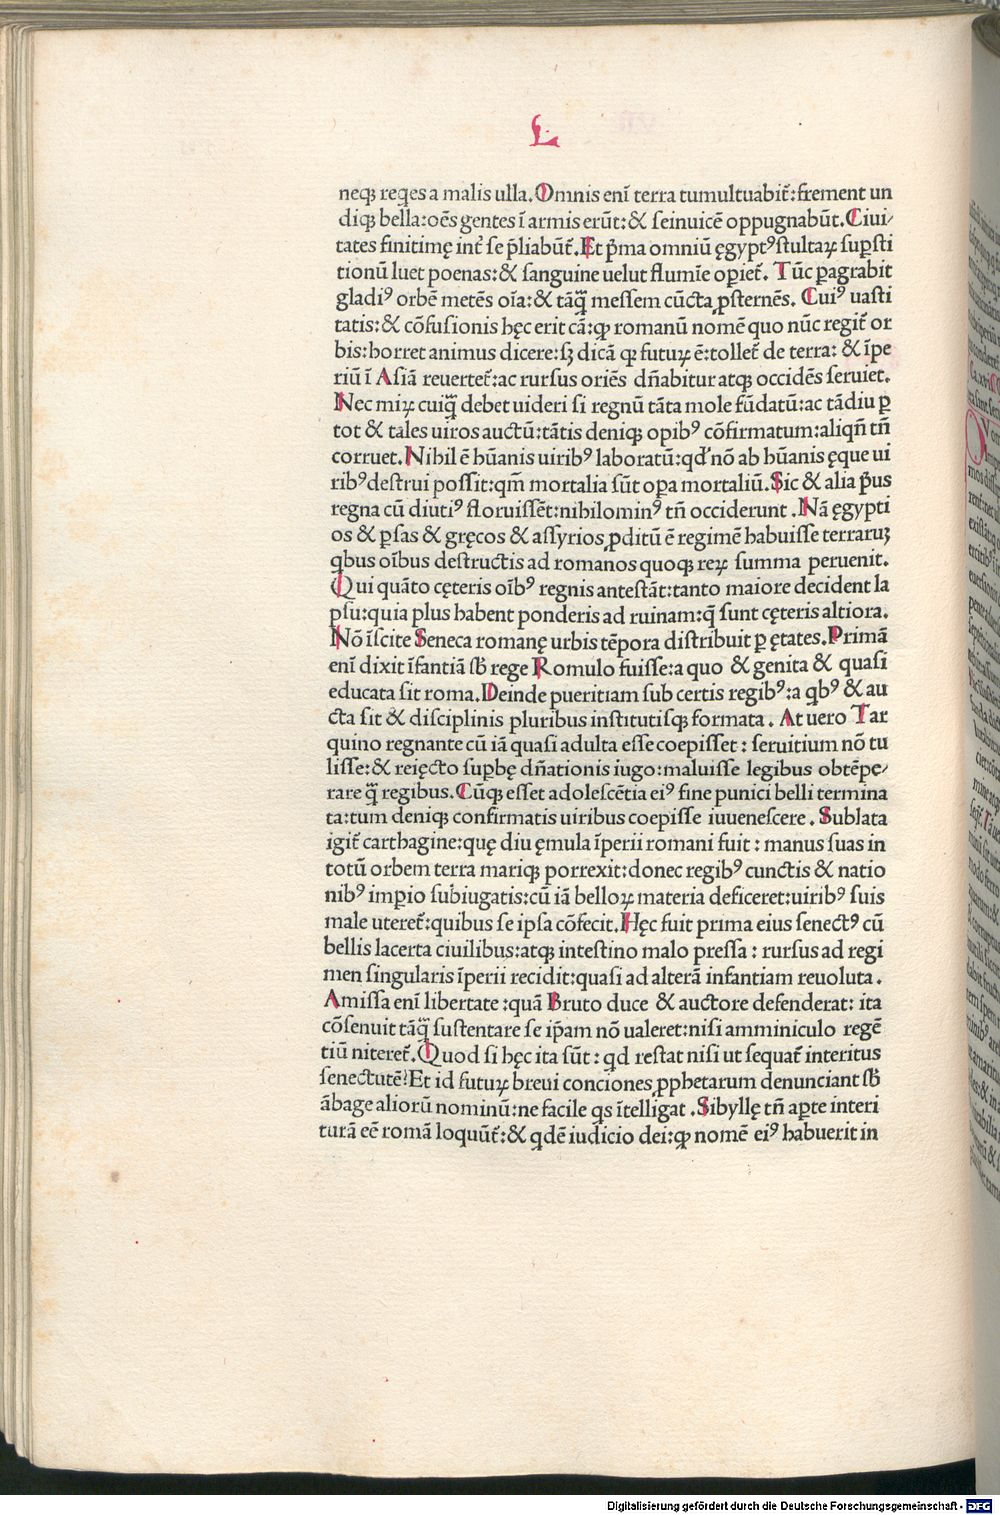 L
neqꝫ reqes a malis ulla. Omnis enī terra tumultuabit᷑: frement un
diqꝫ bella: oēs gentes ī armis erūt: & seinuicē oppugnabūt. Ciui⸗
tates finitimę int᷑ se p̄liabūt᷑. Et p̄ma omniū ęgyptꝰ stultaꝝ suꝑsti
tionū luet poenas: & sanguine uelut flumīe oꝑiet᷑. Tūc ꝑagrabit
gladiꝰ orbē metēs oīa: & tāq̄ messem cūcta ꝓsternēs. Cuiꝰ uasti
tatis: & cōfusionis hęc erit cā: ꝙ romanū nomē quo nūc regit᷑ or
bis: horret animus dicere: sꝫ dicā ꝙ futuꝝ ē: tollet᷑ de terra: & īpe
riū ī Asiā reuertet᷑: ac rursus oriēs dn̄abitur atqꝫ occidēs seruiet.
Nec miꝝ cuiq̄ debet uideri si regnū tāta mole fūdatū: ac tādiu ꝑ
tot & tales uiros auctū: tātis deniqꝫ opibꝰ cōfirmatum: aliqn̄ tn̄
corruet. Nihil ē hūanis uiribꝰ laboratū: qd' nō ab hūanis ęque ui
ribꝰ destrui possit: qm̄ mortalia sūt oꝑa mortaliū. Sic & alia p̄us
regna cū diutiꝰ floruissēt: nihilominꝰ tn̄ occiderunt. Nā ęgypti
os & ꝑsas & gręcos & assyrios ꝓditū ē regimē habuisse terraruꝫ
qbus oībus destructis ad romanos quoqꝫ reꝝ summa peruenit.
Qui quāto cęteris oībꝰ regnis antestāt: tanto maiore decident la
psu: quia plus habent ponderis ad ruinam: q̄ sunt cęteris altiora.
Nō īscite Seneca romanę urbis tēpora distribuit ꝑ ętates. Primā
enī dixit īfantiā sb̄ rege Romulo fuisse: a quo & genita & quasi
educata sit roma. Deinde pueritiam sub certis regibꝰ: a qbꝰ & au
cta sit & disciplinis pluribus institutisqꝫ formata. At uero Tar
quino regnante cū iā quasi adulta esse coepisset: seruitium nō tu
lisse: & reięcto suꝑbę dn̄ationis iugo: maluisse legibus obtēpe⸗
rare q̄ regibus. Cūqꝫ esset adolescētia eiꝰ fine punici belli termina
ta: tum deniqꝫ confirmatis uiribus coepisse iuuenescere. Sublata
igit᷑ carthagine: quę diu ęmula īperii romani fuit: manus suas in
totū orbem terra mariqꝫ porrexit: donec regibꝰ cunctis & natio
nibꝰ imꝑio subiugatis: cū iā belloꝝ materia deficeret: uiribꝰ suis
male uteret᷑: quibus se ipsa cōfecit. Hęc fuit prima eius senectꝰ cū
bellis lacerta ciuilibus: atqꝫ intestino malo pressa: rursus ad regi
men singularis īperii recidit: quasi ad alterā infantiam reuoluta.
Amissa enī libertate: quā Bruto duce & auctore defenderat: ita
cōsenuit tāq̄ sustentare se ip̄am nō ualeret: nisi amminiculo regē
tiū niteret᷑. Quod si hęc ita sūt: qd restat nisi ut sequat᷑ interitus
senectutē? Et id futuꝝ breui conciones ꝓphetarum denunciant sb̄
ābage aliorū nominū: ne facile qs ītelligat. Sibyllę tn̄ aꝑte interi
turā eē romā loquūt᷑: & qdē iudicio dei: ꝙ nomē eiꝰ habuerit in
Digitalisierung gefördert durch die Deutsche Forschungsgemeinschaft - DFG